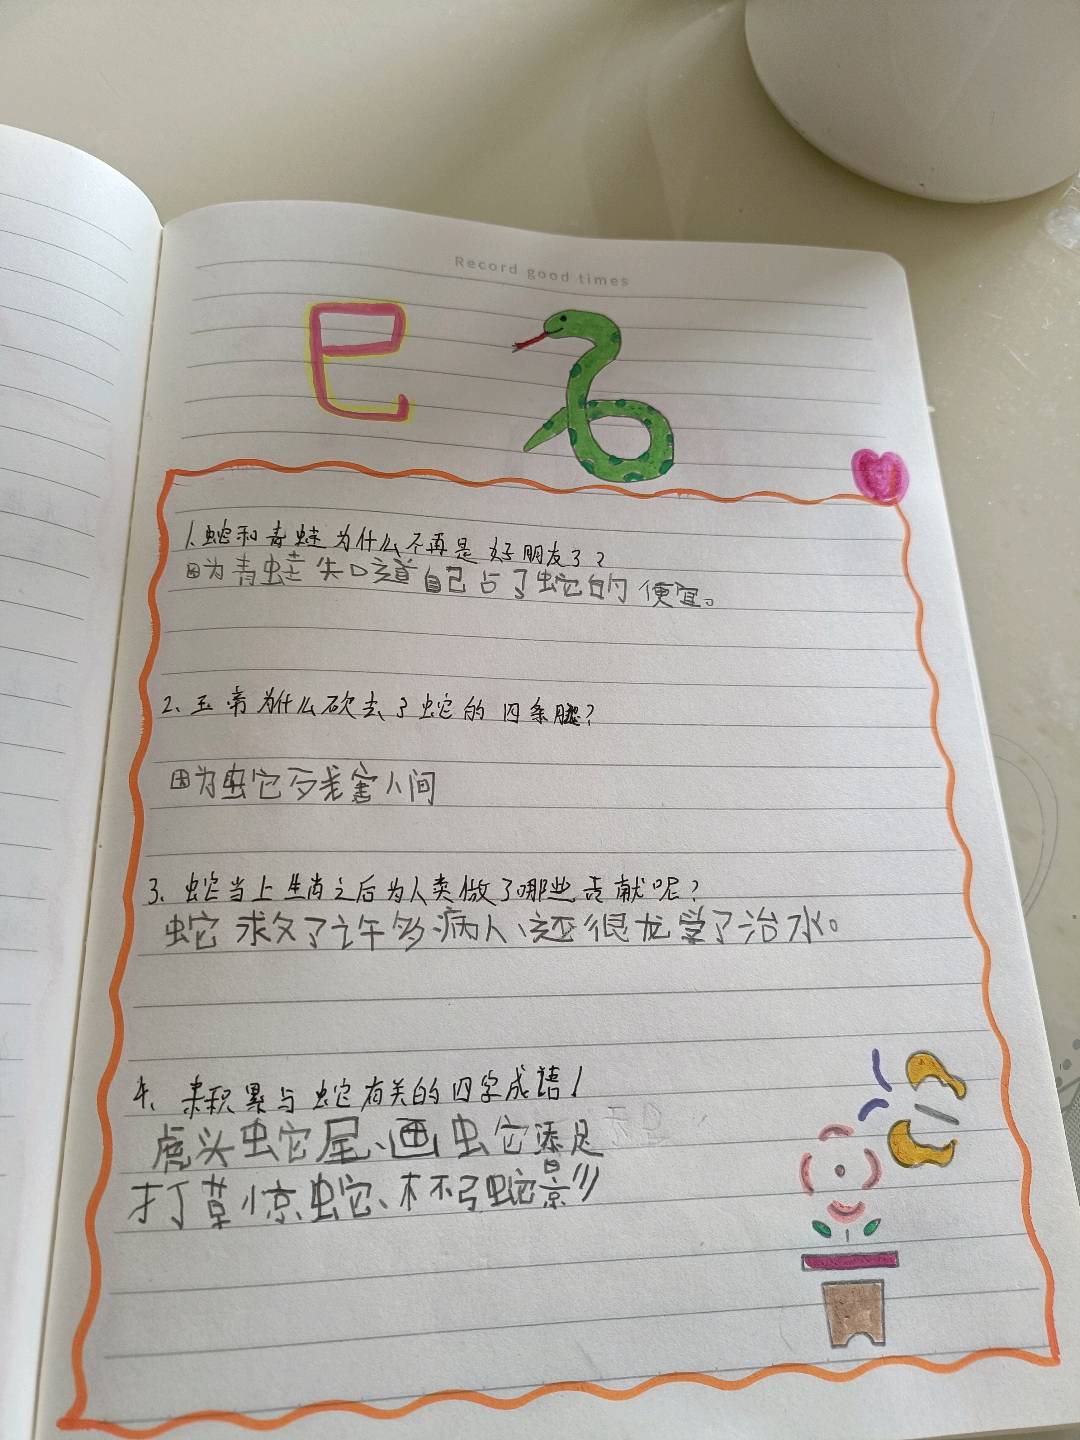 Record good times
巳
1.蛇和青蛙为什么不再是好朋友了?
因为青蛙知道自己占了蛇的便宜。
2、玉帝为什么砍去了蛇的四条腿?
因为蛇残害人间
3、蛇当上生肖之后为人类做了哪些贡献呢?
蛇求了许多病人、还很龙学了治水。
4、来积累与蛇有关的四字成语!
虎头蛇尾、画蛇添足
打草惊蛇、杯弓蛇影